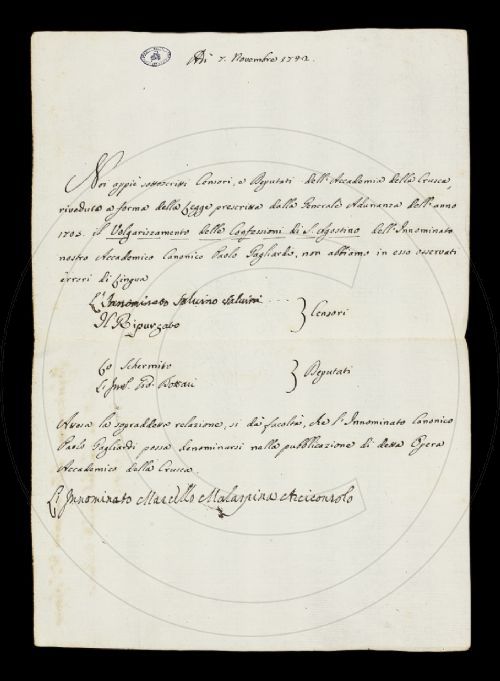 Adì 7. Novembre 1742.
Noi appiè sottoscritti Censori, e Deputati dell'Accademia della Crusca,
riveduto a forma della Legge prescritta dalla Generale Adunanza dell'anno
1705. il Volgarizzamento delle Confessioni di S. Agostino dell'Innominato
nostro Accademico Canonico Paolo Gagliardi, non abbiamo in esso osservati
errori di Lingua
L'Innominato Salvino Salvini
Il Ripurgato
} Censori
Lo Schermito
L'Inn.º Gio. Bottari
} Deputati
Attesa la sopraddetta relazione, si dà facoltà, che l'Innominato Canonico
Paolo Gagliardi possa denominarsi nella pubblicazione di detta Opera
Accademico della Crusca.
L'Innominato Marcello Malaspina Arciconsolo